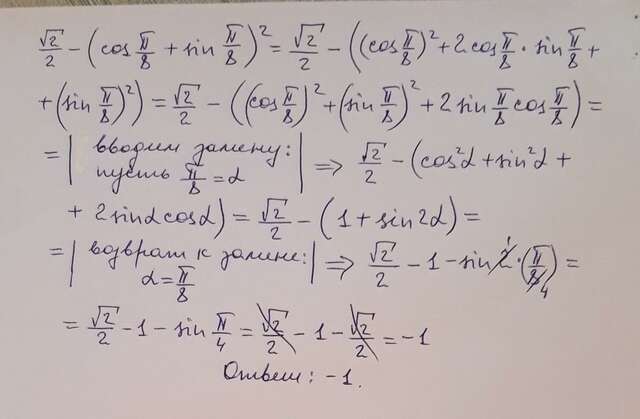 √2/2 - (cos π/8 + sin π/8)² = √2/2 - ((cos π/8)² + 2cos π/8 · sin π/8 +
+ (sin π/8)²) = √2/2 - ((cos π/8)² + (sin π/8)² + 2 sin π/8 cos π/8) =
= | вводим замену: пусть π/8 = α | ⇒ √2/2 - (cos²α + sin²α +
+ 2 sinα cosα) = √2/2 - (1 + sin 2α) =
= | возврат к замене: α = π/8 | ⇒ √2/2 - 1 - sin 2̸¹ · (π/8̸₄) =
= √2/2 - 1 - sin π/4 = √2/2 - 1 - √2/2 = -1
Ответ: -1.